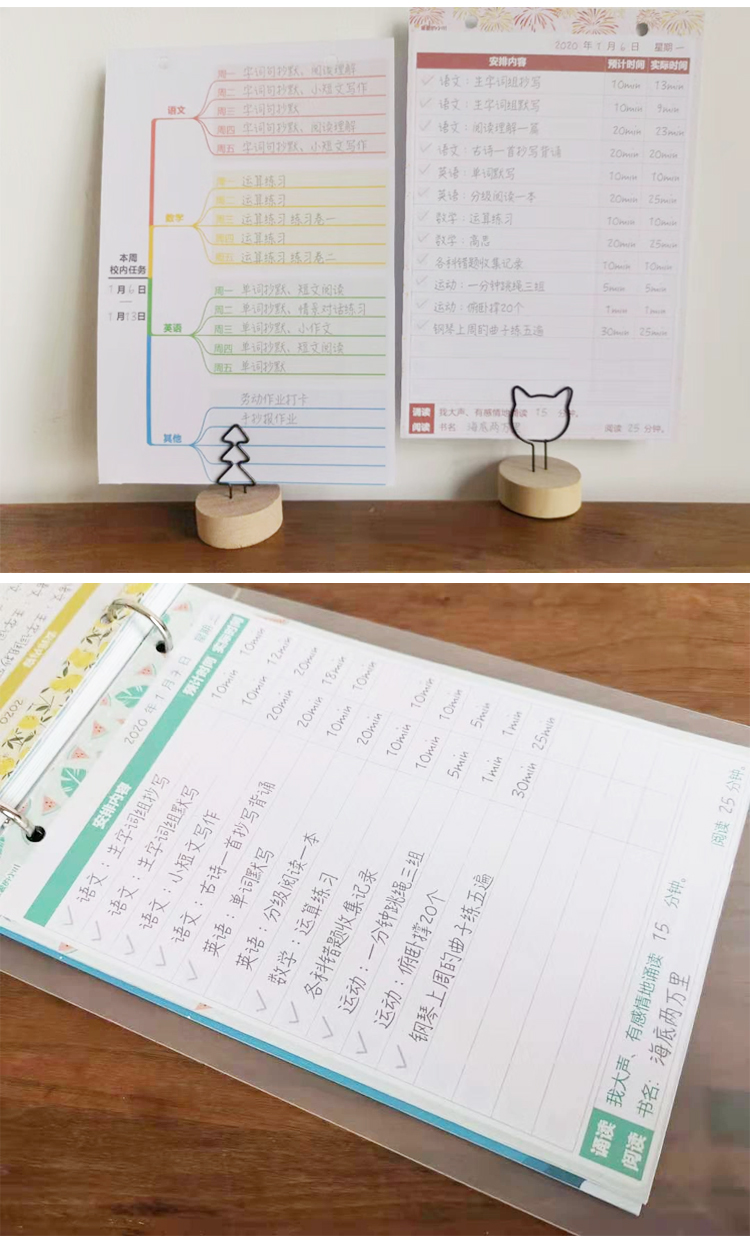 语文
周一 字词句抄默、阅读理解
周二 字词句抄默、小短文写作
周三 字词句抄默
周四 字词句抄默、阅读理解
周五 字词句抄默、小短文写作
数学
周一 运算练习
周二 运算练习
周三 运算练习 练习卷一
周四 运算练习
周五 运算练习 练习卷二
本周
校内任务
1月6日
1月13日
英语
周一 单词抄默、短文阅读
周二 单词抄默、情景对话练习
周三 单词抄默、小作文
周四 单词抄默、短文阅读
周五 单词抄默
其他
劳动作业打卡
手抄报作业
2020 年 1 月 6 日 星期一
安排内容 预计时间 实际时间
语文：生字词组抄写 10min 13min
语文：生字词组默写 10min 9min
语文：阅读理解一篇 20min 23min
语文：古诗一首抄写背诵 20min 20min
英语：单词默写 10min 10min
英语：分级阅读一本 20min 25min
数学：运算练习 10min 10min
数学：高思 20min 25min
各科错题收集记录 10min 10min
运动：一分钟跳绳三组 5min 5min
运动：俯卧撑20个 1min 1min
钢琴上周的曲子练五遍 30min 25min
诵读 我大声、有感情地诵读 15 分钟。
阅读 书名 海底两万里 阅读 25 分钟。
2020
2020 年 1 月 7 日 星期二
安排内容 预计时间 实际时间
语文：生字词组抄写 10min 10min
语文：生字词组默写 10min 12min
语文：小短文写作 20min 20min
语文：古诗一首抄写背诵 20min 18min
英语：单词默写 10min 10min
英语：分级阅读一本 20min
数学：运算练习 10min 10min
各科错题收集记录 10min 10min
运动：一分钟跳绳三组 5min 5min
运动：俯卧撑20个 1min 1min
钢琴上周的曲子练五遍 30min 25min
诵读 我大声、有感情地诵读 15 分钟。
阅读 书名：海底两万里 阅读 25 分钟。